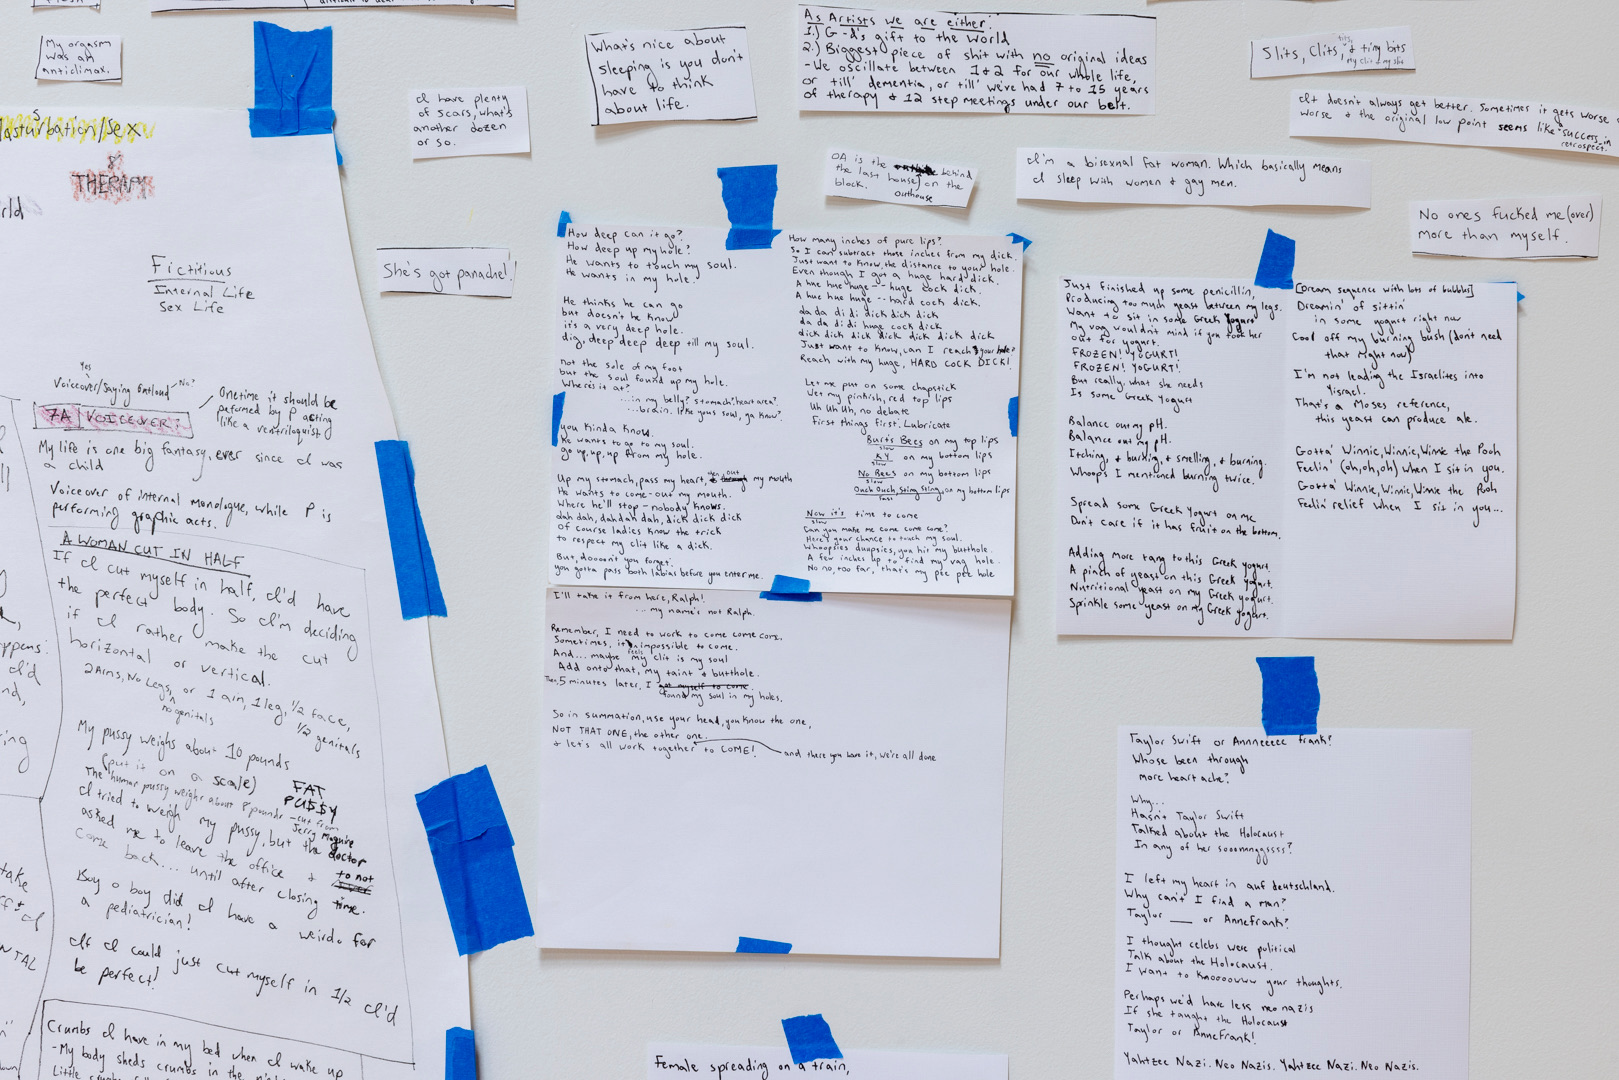 My orgasm
was an
anticlimax.
I have plenty
of scars, what's
another dozen
or so.
What's nice about
sleeping is you don't
have to think
about life.
As Artists we are either:
1.) G-d's gift to the world
2.) Biggest piece of shit with no original ideas
-We oscillate between 1 & 2 for our whole life,
or till' dementia, or till' we've had 7 to 15 years
of therapy & 12 step meetings under our belt.
Slits, Clits, & tiny bits
tits,
my clit my slit
It doesn't always get better. Sometimes it gets worse
worse & the original low point seems like success in
retrospect.
OA is the behind
the last house on the
block. outhouse
I'm a bisexual fat woman. Which basically means
I sleep with women & gay men.
No ones fucked me (over)
more than myself.
She's got panache!
Masturbation/Sex
&
THERAPY
rld
Fictitious
Internal Life
Sex Life
Yes
Voiceover/Saying outloud No?
Onetime it should be
peformed by P acting
like a ventriloquist
7A VOICEOVER:
My life is one big fantasy, ever since I was
a child
Voiceover of internal monologue, while P is
performing graphic acts.
A WOMAN CUT IN HALF
If I cut myself in half, I'd have
the perfect body. So I'm deciding
if I rather make the cut
horizontal or vertical.
2 Arms, No Legs, or 1 arm, 1 leg, 1/2 face,
no genitals
1/2 genitals
My pussy weighs about 10 pounds
(put it on a scale)
The human pussy weighs about 8 pounds -cut from
Jerry Maguire
FAT
PU$$Y
I tried to weigh my pussy, but the doctor
asked me to leave the office & to not
come back... until after closing time.
Boy o boy did I have a weirdo for
a pediatrician!
If I could just cut myself in 1/2 I'd
be perfect!
Crumbs I have in my bed when I wake up
-My body sheds crumbs in the
Little
How deep can it go?
How deep up my hole?
He wants to touch my soul.
He wants in my hole.
He thinks he can go
but doesn't he know
it's a very deep hole.
dig, deep deep deep till my soul.
not the sole of my foot
but the soul found up my hole.
Where's it at?
...in my belly? stomach? heart area?
...brain. like yous soul, ya know?
you kinda know.
He wants to go to my soul.
go up, up, up from my hole.
Up my stomach, pass my heart, then out through my mouth
He wants to come-out my mouth.
Where he'll stop - nobody knows.
dah dah, dahdah dah, dick dick dick
Of course ladies know the trick
to respect my clit like a dick.
But, doooon't you forget.
you gotta pass both labias before you enter me.
How many inches of pure lips?
So I can subtract those inches from my dick.
Just want to know, the distance to your hole.
Even though I got a huge hard dick.
A hue hue huge -- huge cock dick.
A hue hue huge -- hard cock dick.
da da di di dick dick dick
da da di di huge cock dick
dick dick dick dick dick dick dick
Just want to know, can I reach your hole?
Reach with my huge, HARD COCK DICK!
Let me put on some chapstick
Wet my pinkish, red top lips
Uh Uh Uh, no debate
First things first. Lubricate
Burt's Bees on my top lips
slow
KY on my bottom lips
slow
No Bees on my bottom lips
slow
Ouch Ouch, Sting Sting, on my bottom lips
fast
Now it's time to come
slow
Can you make me come come come?
Here's your chance to touch my soul.
Whoopsies dupsies, you hit my butthole.
A few inches up to find my vag hole.
No no, too far, that's my pee pee hole
I'll take it from here, Ralph!
... my name's not Ralph.
Remember, I need to work to come come come.
Sometimes, it feels impossible to come.
And... maybe my clit is my soul
Add onto that, my taint & butthole.
Then, 5 minutes later, I got myself to come.
found my soul in my holes.
So in summation, use your head, you know the one,
NOT THAT ONE, the other one.
& let's all work together to COME! and there you have it, we're all done
Just finished up some penicillin,
Producing too much yeast between my legs.
Want to sit in some Greek Yogurt
My vag wouldn't mind if you took her
out for yogurt.
FROZEN! YOGURT!
FROZEN! YOGURT!
But really, what she needs
Is some Greek Yogurt
Balance out my pH.
Balance out my pH.
Itching, & burning, & smelling, & burning.
Whoops I mentioned burning twice.
Spread some Greek Yogurt on me
Don't care if it has fruit on the bottom.
Adding more tang to this Greek yogurt.
A pinch of yeast on this Greek yogurt.
Nutritional yeast on my Greek yogurt.
Sprinkle some yeast on my Greek yogurt.
[Dream sequence with lots of bubbles]
Dreamin' of sittin'
in some yogurt right now
Cool off my burning bush (don't need
that right now)
I'm not leading the Israelites into
Yisrael.
That's a Moses reference,
this yeast can produce ale.
Gotta' Winnie, Winnie, Winnie the Pooh
Feelin' (oh, oh, oh) when I sit in you.
Gotta' Winnie, Winnie, Winnie the Pooh
Feelin' relief when I sit in you...
Taylor Swift or Annneeeee Frank?
Whose been through
more heart ache?
Why...
Hasn't Taylor Swift
Talked about the Holocaust
In any of her sooonnngssss?
I left my heart in auf deutschland.
Why can't I find a man?
Taylor ___ or Anne Frank?
I thought celebs were political
Talk about the Holocaust.
I want to knooooww your thoughts.
Perhaps we'd have less neo nazis
If she taught the Holocaust
Taylor or Anne Frank!
Yahtzee Nazi. Neo Nazis. Yahtzee Nazi. Neo Nazis.
Female spreading on a train,